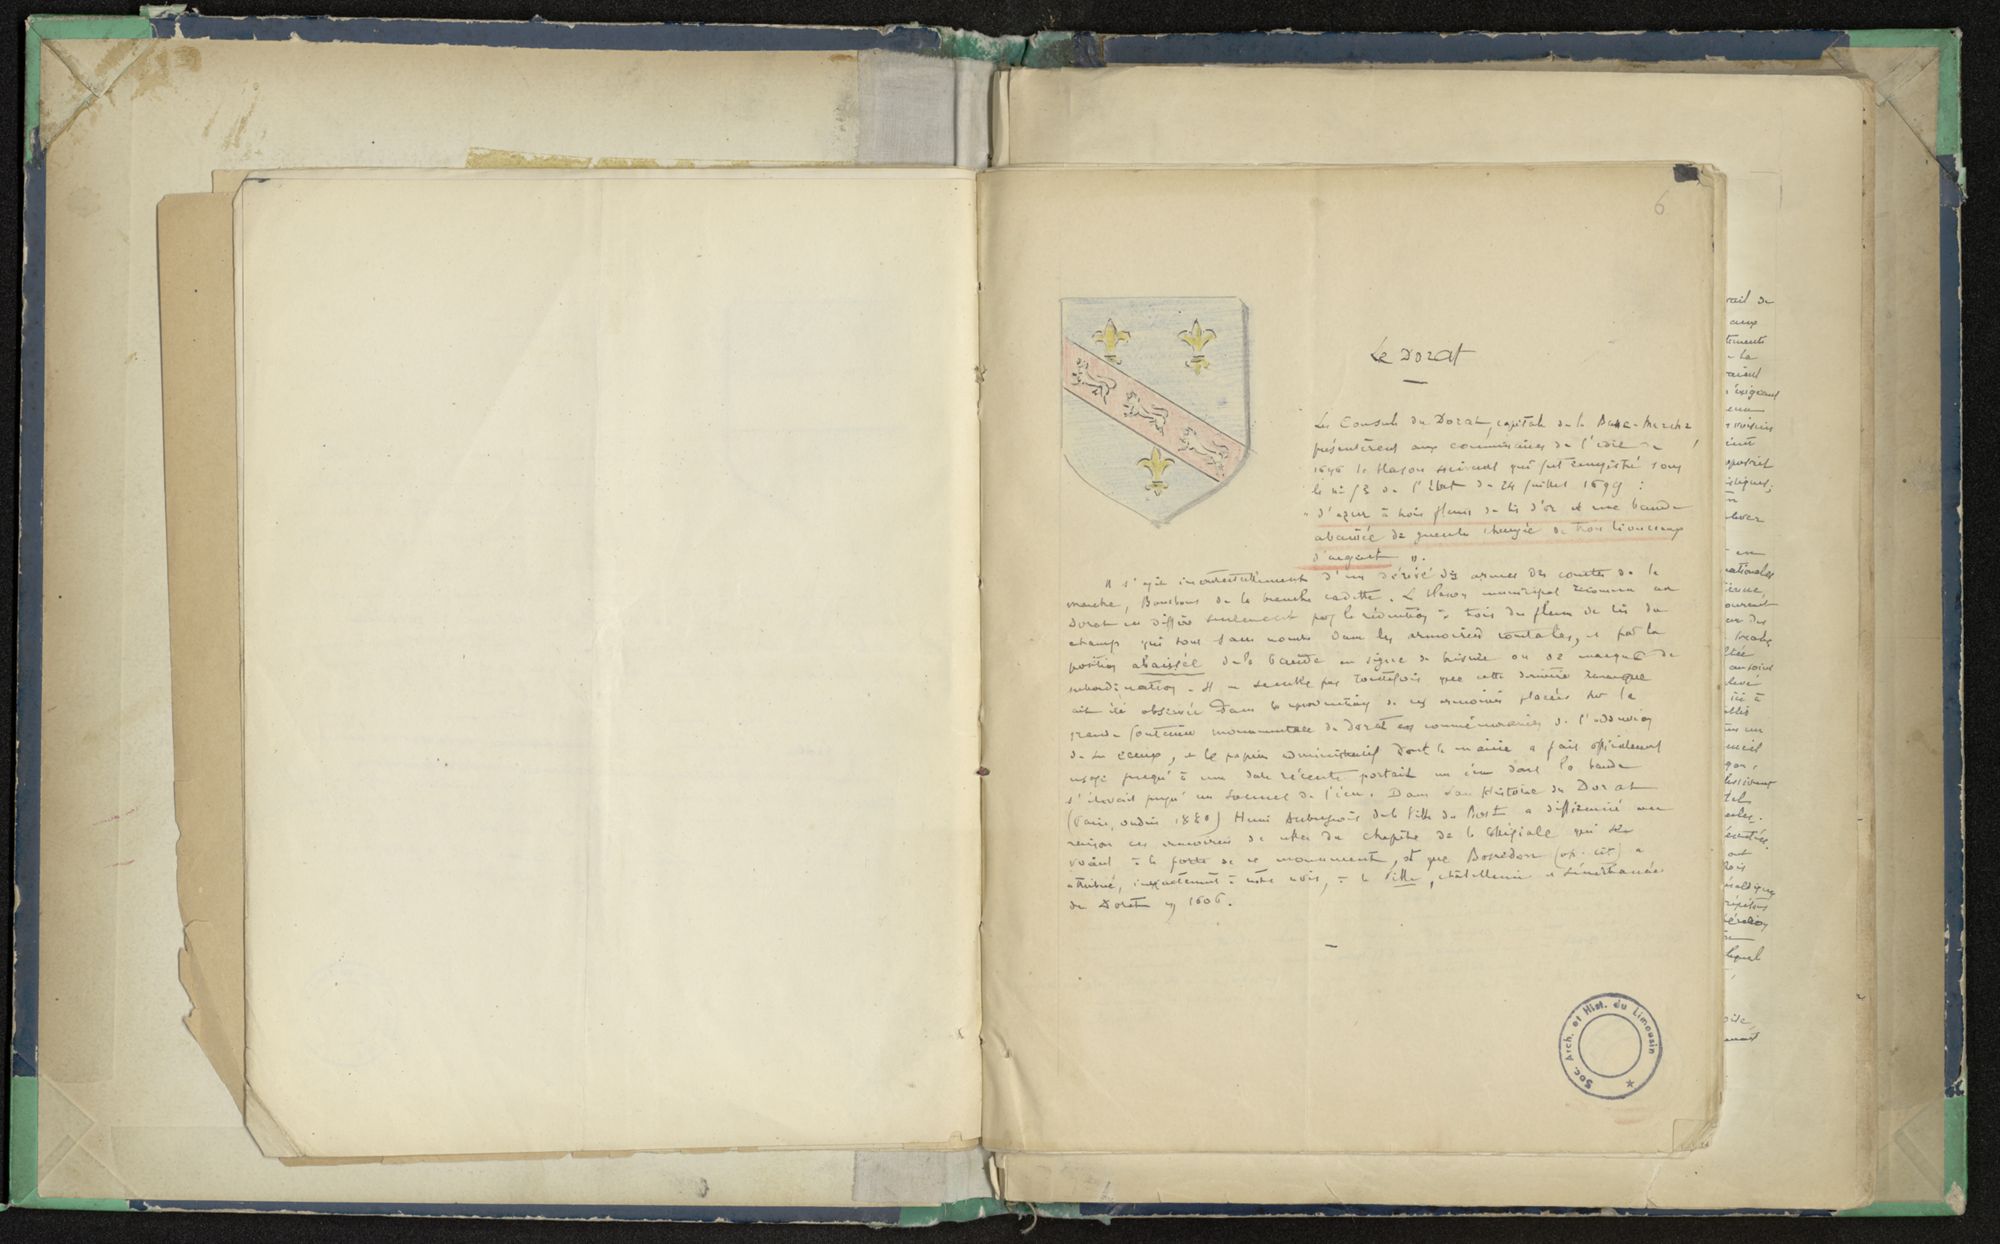 6
Le Dorat
Les Consuls du Dorat, capitale de la Basse-Marche
présentèrent aux commissaires de l'édit de
1696 le blason suivant qui fut enregistré sous
le n° 53 de l'Etat du 24 juillet 1699 :
" d'azur à trois fleurs de lis d'or et une bande
abaissée de gueules chargée de trois lionceaux
d'argent ".
Il s'agit incontestablement d'un dérivé des armes des comtes de la
marche, Bourbons de la branche cadette. Le blason municipal reconnu au
Dorat en diffère seulement par la réduction à trois des fleurs de lis du
champ qui sont sans nombre dans les armoiries comtales, et par la
position abaissée de la bande en signe de brisure ou de marque de
subordination. Il ne semble pas toutefois que cette dernière remarque
ait été observée dans la reproduction de ces armoiries placées sur la
grande fontaine monumentale du Dorat en commémoration de l'adduction
de ses eaux, et le papier administratif dont la mairie a fait officiellement
usage jusqu'à une date récente portait un écu dont la bande
s'élevait jusqu'au sommet de l'écu. Dans son Histoire du Dorat
(Paris, oudin 1880) Henri Aubugeois de la Ville du Bost a différencié avec
raison ces armoiries de celles du chapitre de la collégiale qui se
voient à la porte de ce monument, et que Bosredon (op. cit) a
attribué, inexactement à notre avis, à la Ville, châtellenie et sénéchaussée
du Dorat en 1606.
Soc. Arch. et Hist. du Limousin
vail de
aux
tements
la
exigeaient
nationales